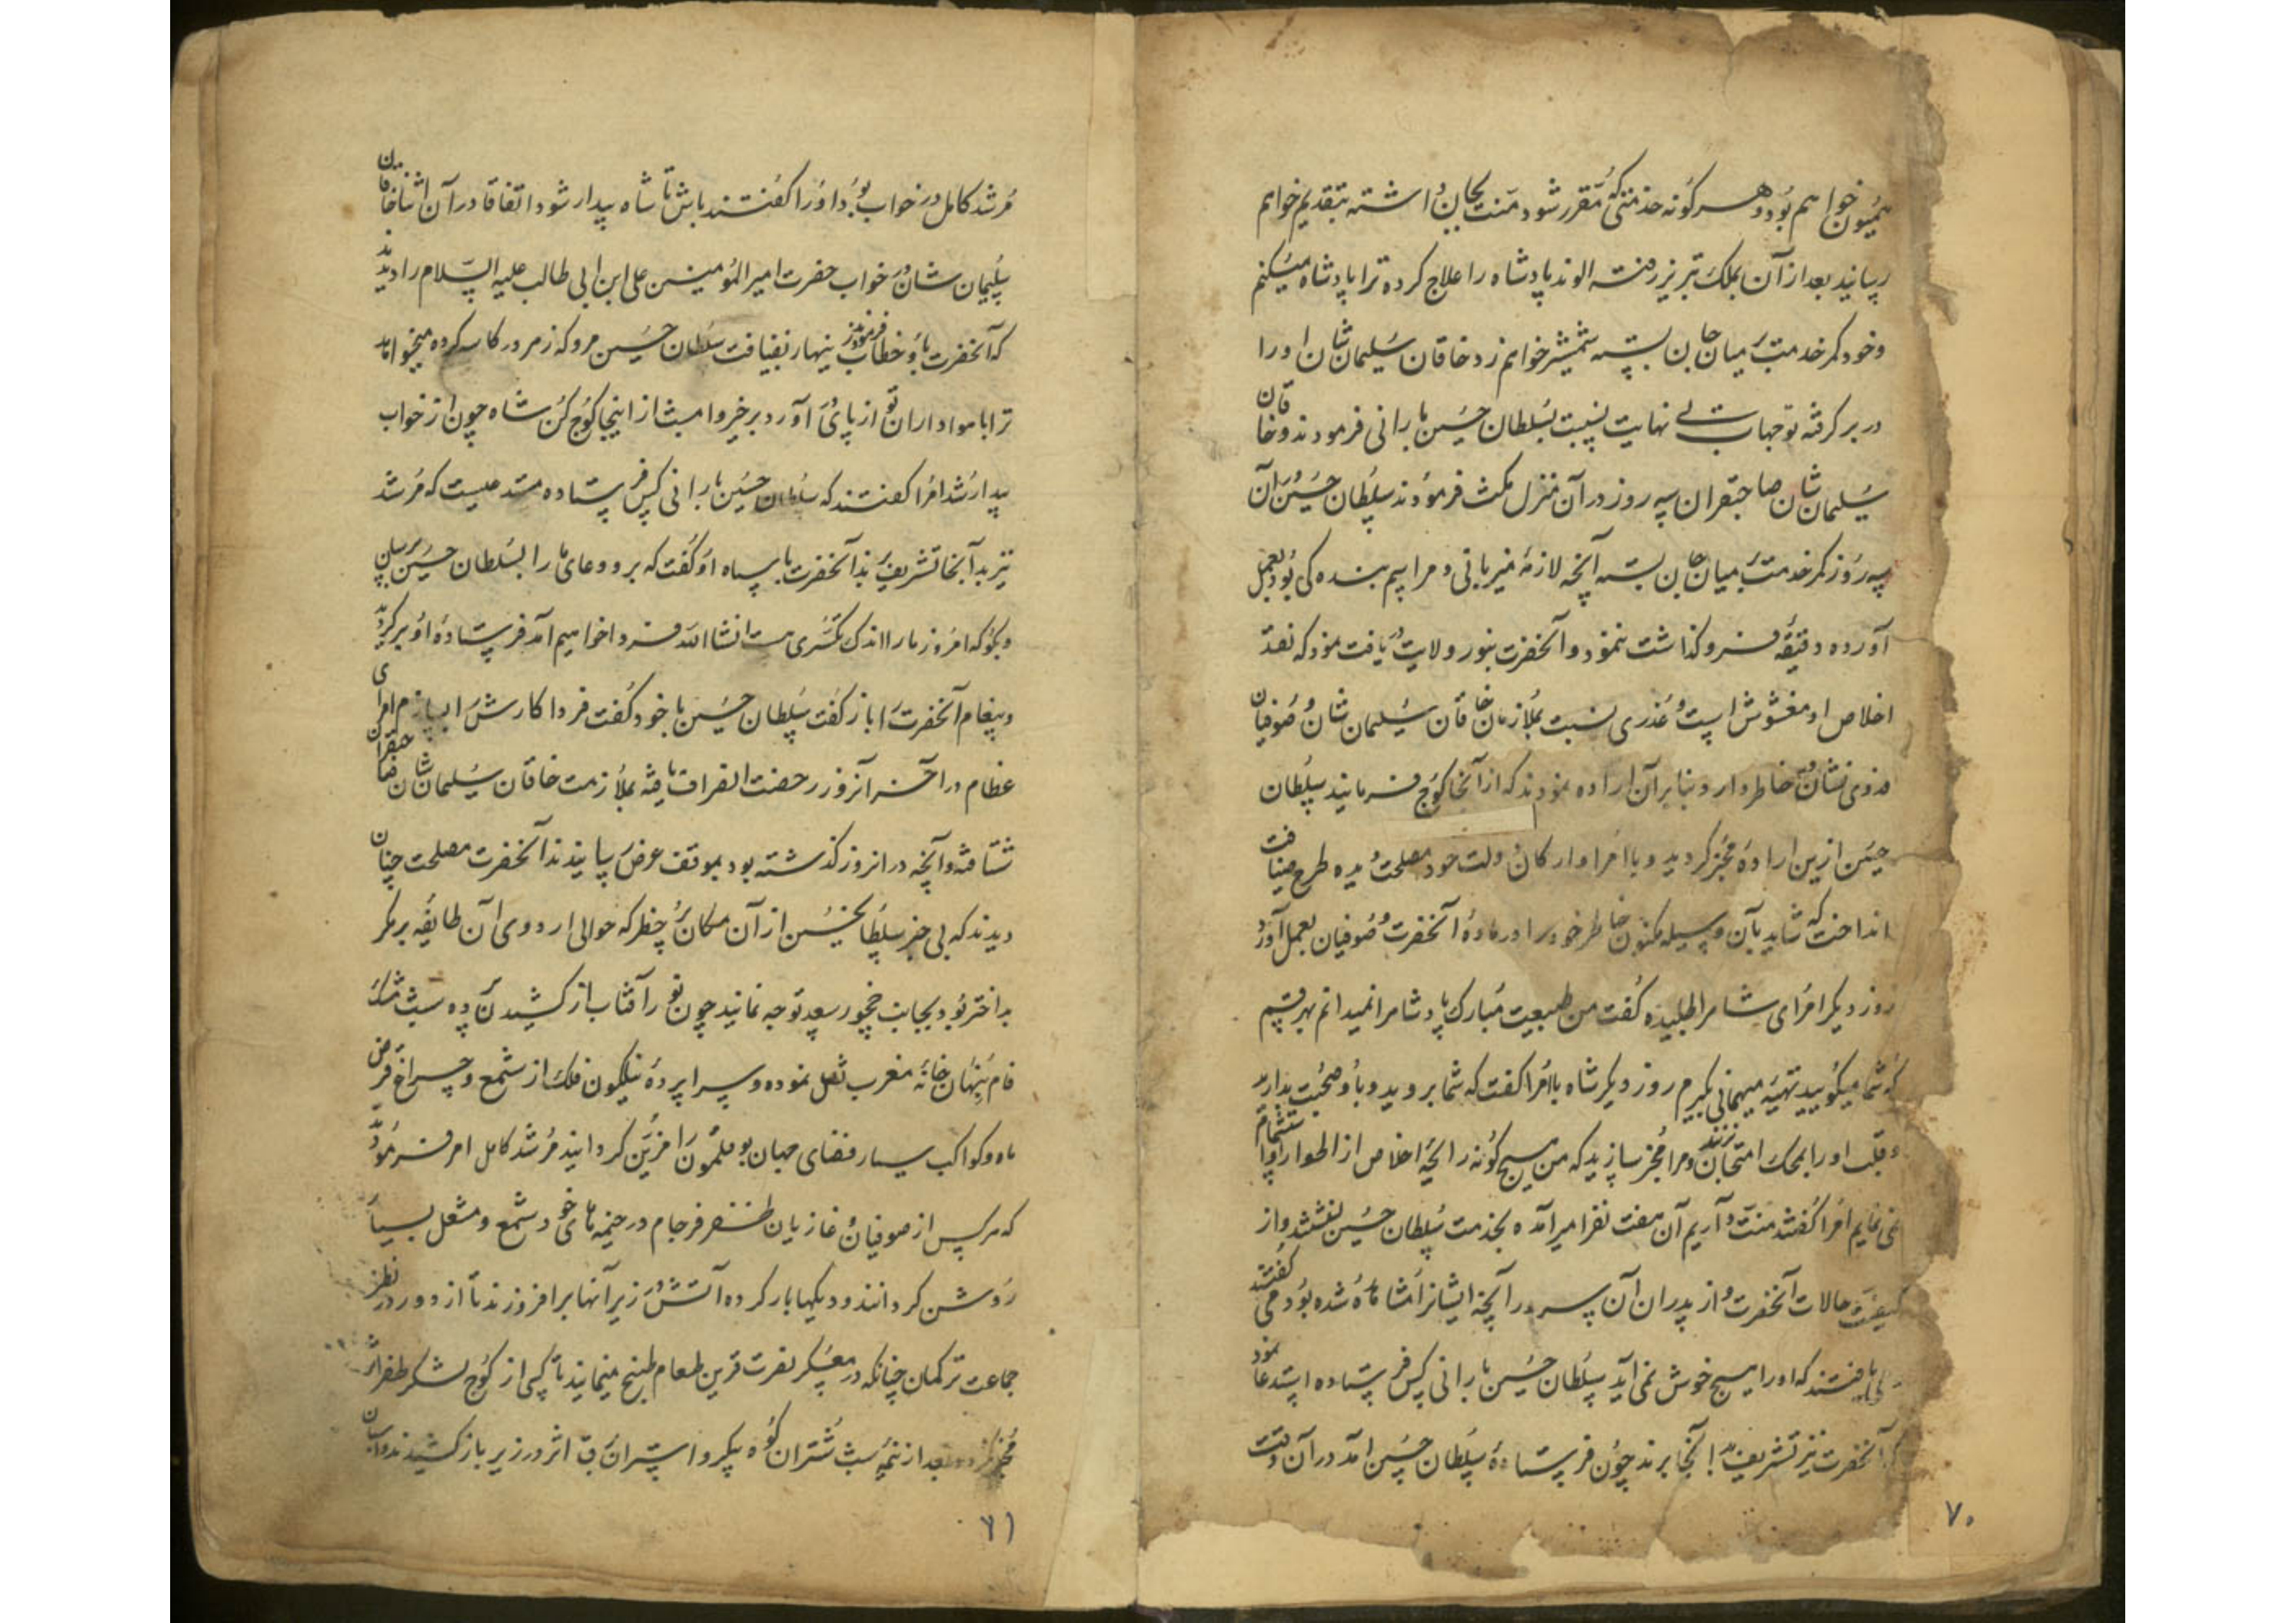 همیون خواهم بود و هر گونه خدمتی که مقرر شود منت بجان داشته بتقدیم خواهم
رسانید بعد از آن بملک تبریز رفته الوند پادشاه را علاج کرده ترا پادشاه میکنم
و خود کمر خدمت بر میان جان بسته شمشیر خواهم زد خاقان سلیمان شان او را
در بر گرفته توجهات بی نهایت نسبت بسلطان حسین بارانی فرمودند و خاقان
سلیمان شان صاحبقران سه روز در آن منزل مکث فرمودند سلطان حسین در آن
سه روز کمر خدمت بر میان جان بسته آنچه لازمهٔ میزبانی و مراسم بنده گی بود بعمل
آورده دقیقهٔ فروگذاشت ننمود و آنحضرت بنور ولایت دریافت نمود که نقد
اخلاص او مغشوش است و غدری نسبت بملازمان خاقان سلیمان شان و صوفیان
فدوی نشان در خاطر دارد بنابر آن اراده نمودند که از آنجا کوچ فرمایند سلطان
حسین ازین اراده مخبر گردید و با امرا و ارکان دولت خود مصلحت دیده طرح ضیافت
انداخت که شاید بآن وسیله مکنون خاطر خود را در مادهٔ آنحضرت و صوفیان بعمل آورد
روز دیگر امرای شاه را طلبیده گفت من طبیعت مبارک پادشاه را نمیدانم بهر قسم
که شما میگویید تهیه میهمانی بگیرم روز دیگر شاه بامرا گفت که شما بروید و با او صحبت بدارید
و قلب او را بمحک امتحان زنید و مرا مخبر سازید که من هیچ گونه رایحهٔ اخلاص از اطوار او استشمام
نمی نمایم امرا گفتند منت داریم آن هفت نفر امیر آمده بخدمت سلطان حسین نشستند و از
کیفیت حالات آنحضرت و از پدران آن سرور آنچه ایشانرا مشاهده شده بود می گفتند
یافتند که او را هیچ خوش نمی آید سلطان حسین بارانی کس فرستاده استدعا نمود
که آنحضرت نیز تشریف بآنجا برند چون فرستادهٔ سلطان حسین آمد در آن وقت
۷۰
مرشد کامل در خواب بود او را گفتند باش تا شاه بیدار شود اتفاقا در آن اثنا خاقان
سلیمان شان در خواب حضرت امیر المؤمنین علی ابن ابی طالب علیه السلام را دیدند
که آنحضرت باو خطاب فرمودند زینهار بضیافت سلطان حسین مرو که زهر در کاسه کرده میخواهد
ترا با هواداران تو از پای در آورد برخیز و امشب از اینجا کوچ کن شاه چون از خواب
بیدار شد امرا گفتند که سلطان حسین بارانی کس فرستاده مستدعیست که مرشد
نیز بدآنجا تشریف برند آنحضرت بفرستاده او گفت که برو و دعای ما را بسلطان حسین برسان
و بگو که امروز ما را اندک تکسری هست انشاالله فردا خواهیم آمد فرستادهٔ او برگردید
و پیغام آنحضرت را باز گفت سلطان حسین با خود گفت فردا کارش را بسازم امرای
عظام در آخر آنروز رخصت انصراف یافته بملازمت خاقان سلیمان شان صاحبقران
شتافته و آنچه در آنروز گذشته بود بموقف عرض رسانیدند آنحضرت مصلحت چنان
دیدند که بی خبر سلطان حسین از آن مکان پر خطر که حوالی اردوی آن طایفه بد مکر
بد اختر بود بجانب خچور سعد توجه نمایند چون تو را آفتاب از کشیدن پرده شب مشک
فام بنهان خانه مغرب نقل نموده و سراپردهٔ نیلگون فلک از شمع و چراغ قرص
ماه و کواکب سیار فضای جهان بوقلمون را مزین گردانید مرشد کامل امر فرمودند
که هر کس از صوفیان و غازیان ظفر فرجام در خیمه های خود شمع و مشعل بسیار
روشن گردانند و دیگها بار کرده آتش در زیر آنها برافروزند تا از دور در نظر
جماعت ترکمان چنانکه در معسکر نصرت قرین طعام طبخ مینمایند تا کسی از کوچ لشکر ظفر اثر
مخبر نگردد بعد از نیمه شب شتران کوه پیکر و استران برق اثر در زیر بار کشیدند و اسبان
۷۱